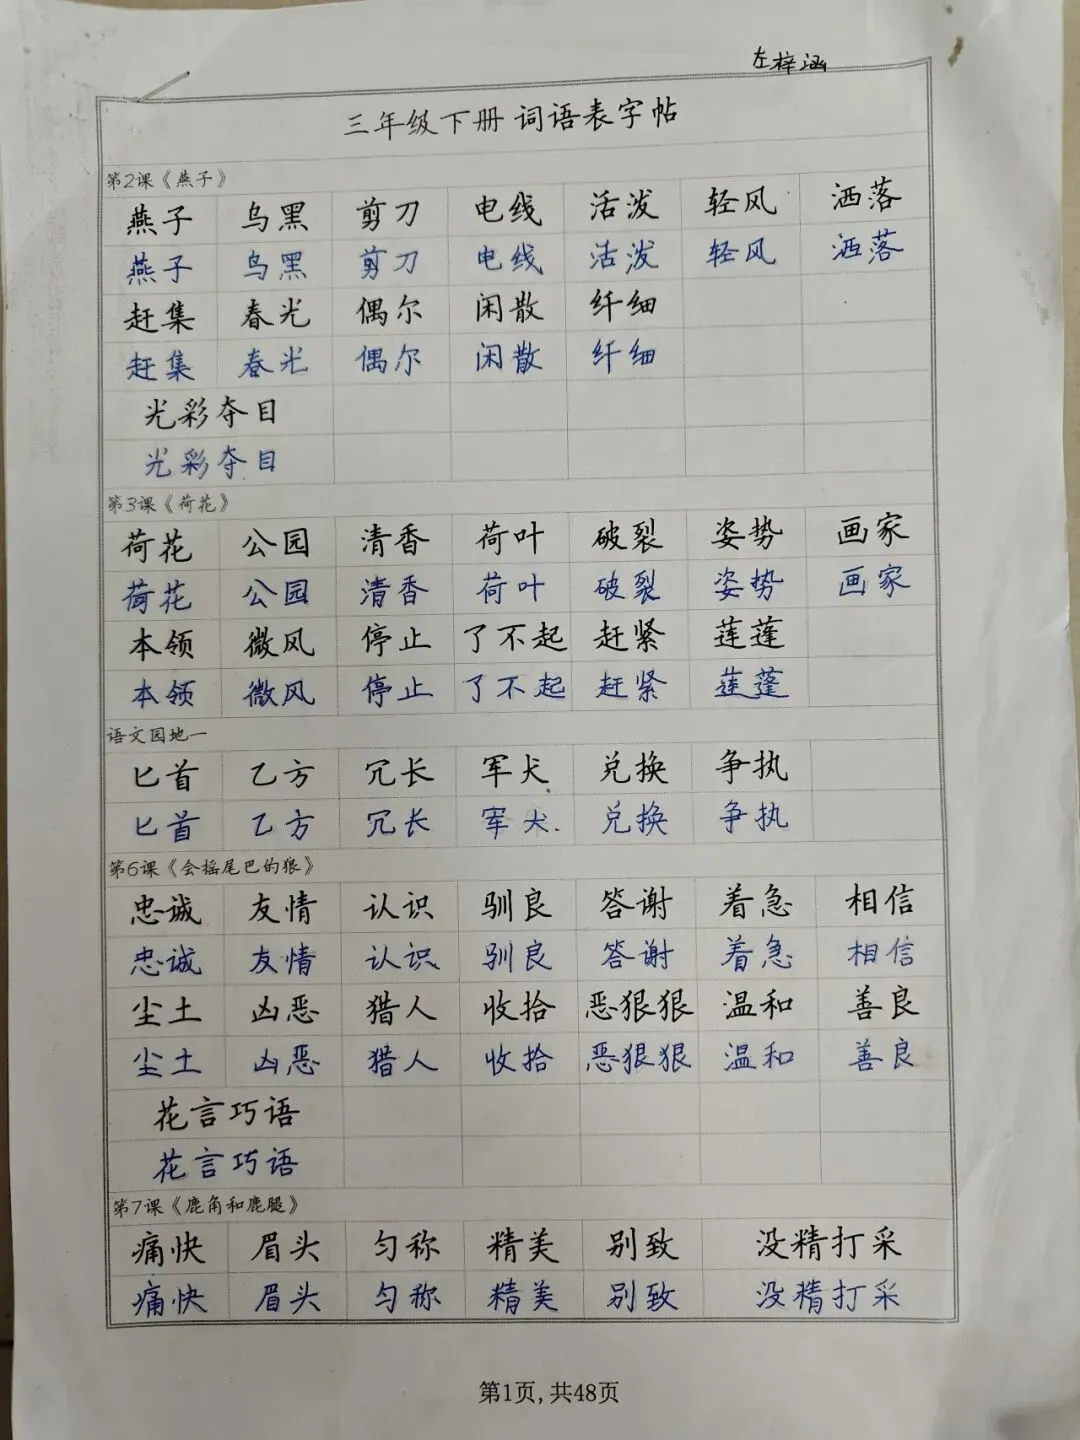 左梓涵
三年级下册 词语表字帖
第2课《燕子》
燕子 乌黑 剪刀 电线 活泼 轻风 洒落
燕子 乌黑 剪刀 电线 活泼 轻风 洒落
赶集 春光 偶尔 闲散 纤细
赶集 春光 偶尔 闲散 纤细
光彩夺目
光彩夺目
第3课《荷花》
荷花 公园 清香 荷叶 破裂 姿势 画家
荷花 公园 清香 荷叶 破裂 姿势 画家
本领 微风 停止 了不起 赶紧 莲蓬
本领 微风 停止 了不起 赶紧 莲蓬
语文园地一
匕首 乙方 冗长 军犬 兑换 争执
匕首 乙方 冗长 军犬 兑换 争执
第6课《会摇尾巴的狼》
忠诚 友情 认识 驯良 答谢 着急 相信
忠诚 友情 认识 驯良 答谢 着急 相信
尘土 凶恶 猎人 收拾 恶狠狠 温和 善良
尘土 凶恶 猎人 收拾 恶狠狠 温和 善良
花言巧语
花言巧语
第7课《鹿角和鹿腿》
痛快 眉头 匀称 精美 别致 没精打采
痛快 眉头 匀称 精美 别致 没精打采
第1页,共48页